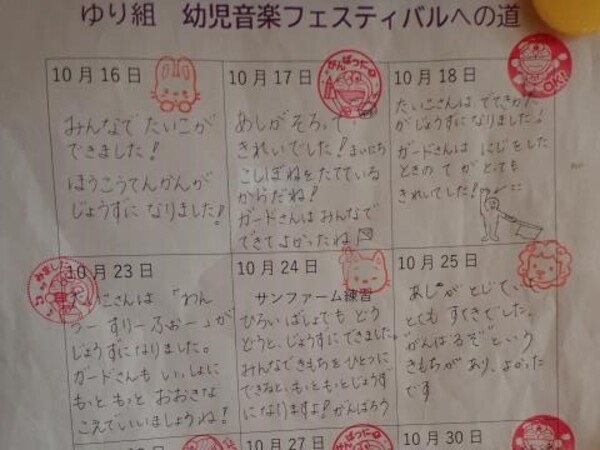 ゆり組　幼児音楽フェスティバルへの道
10月16日
みんなで たいこが
できました!
ほうこうてんかんが
じょうずに なりました!
10月17日
がんばったね
あしが そろって
きれいでした! まいにち
こしぼねをたてている
からだね!
ガードさんは みんなで
できてよかったね
10月18日
OK!
たいこさんは、でてきかた
がじょうずになりました!
ガードさんは にじをした
ときの てが とても
きれいでした!
10月23日
たいこさんは 「わん
つー すりー ふぉー」が
じょうずになりました。
ガードさんも いっしょに
もっと もっと おおきな
こえでいいましょうね!
10月24日
サンファーム練習
ひろい ばしょでも どう
どうと、じょうずにできました。
みんなできもちをひとつに
できると、もっともっとじょうず
になりますよ! がんばろう
10月25日
あしが とじていて
とても すてきでした。
"がんばるぞ"という
きもちがあり、よかった
です
10月27日
10月30日